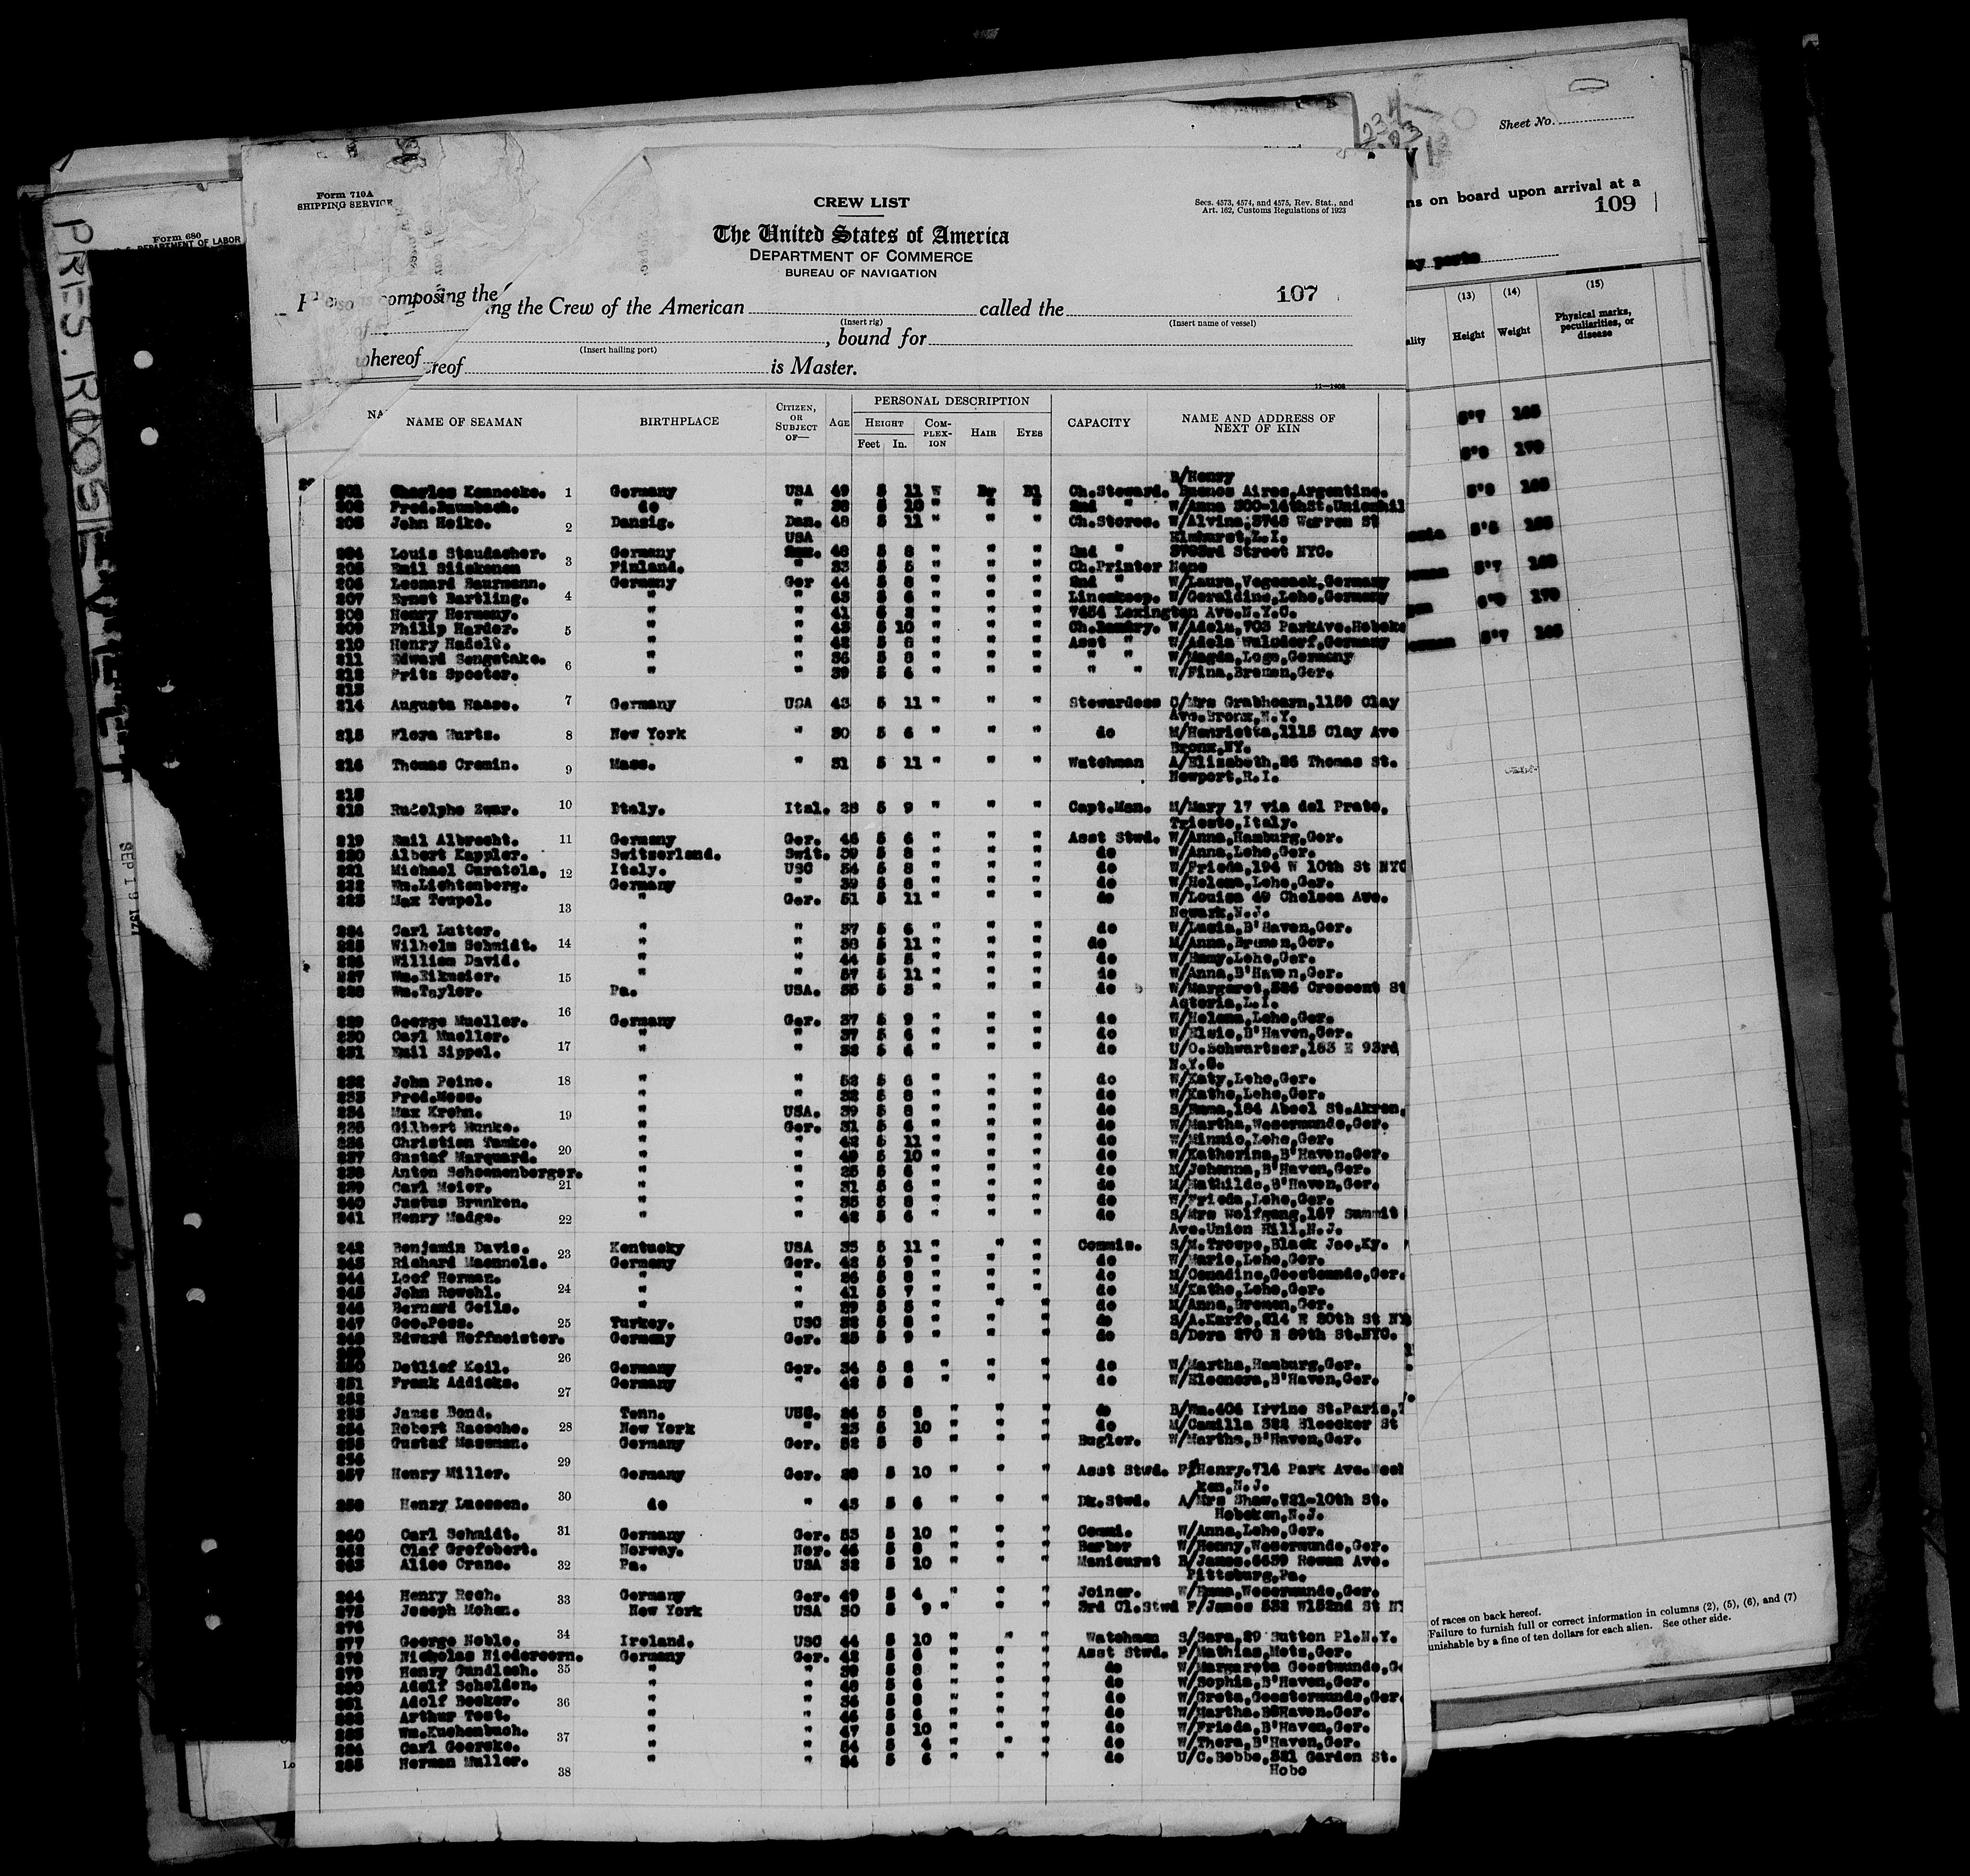 Sheet No.
ns on board upon arrival at a
109
Form 710A
SHIPPING SERVICE
CREW LIST
Secs. 4573, 4574, and 4575, Rev. Stat., and
Art. 162, Customs Regulations of 1923
The United States of America
DEPARTMENT OF COMMERCE
BUREAU OF NAVIGATION
Form 680
DEPARTMENT OF LABOR
PRES. ROOSEVELT
SEP 19 1927
composing the
ing the Crew of the American called the 107
(Insert rig) (Insert name of vessel)
, bound for
(Insert hailing port)
whereof
reof is Master.
11—1408
NAME OF SEAMAN BIRTHPLACE CITIZEN, OR SUBJECT OF— AGE PERSONAL DESCRIPTION CAPACITY NAME AND ADDRESS OF NEXT OF KIN
HEIGHT COMPLEXION HAIR EYES
Feet In.
(13) (14) (15)
Height Weight Physical marks, peculiarities, or disease
B/Henry
201 Charles Kennecke. 1 Germany USA 49 5 11 W Br Bl Ch.Steward. Buenos Aires,Argentine.
Fred.Baumbach. do " 5 10 " " " 2nd " W/Anna 300-14thSt.Unionhil
John Heike. 2 Danzig. Dan. 48 5 11 " " " Ch.Stores. W/Alvina,3748 Warren St
USA Elmhurst,L.I.
204 Louis Staudacher. Germany 5 8 " " " 2nd " Street NYC.
205 Emil 3 Finland. " 33 5 5 " " " Ch.Printer None
206 Leonard Baurmann. Germany Ger 44 5 8 " " " 2nd " W/Laura,Vegesack,Germany
207 Ernst Bartling. 4 " " 43 5 6 " " " Linenkeep. W/Geraldine,Lehe,Germany
208 Henry Hermany. " " 41 5 " " " Lexington Ave.N.Y.C.
209 Philip Harder. 5 " " 43 5 10 " " " Ch.Laundry. W/Adela,703 ParkAve.Hoboke
210 Henry Hadelt. " " 42 5 " " " Asst " W/Adela Walsdorf,Germany
211 Edward Sengstake. 6 " " 36 5 8 " " " " " W/Magda,Loge,Germany
212 Fritz Spoeter. " " 39 5 6 " " " " " W/Fina,Bremen,Ger.
213
214 Augusta Haase. 7 Germany USA 43 5 11 " " " Stewardess Grabhearn,1159 Clay
Ave.Bronx,N.Y.
215 Flora Wurts. 8 New York " 30 5 6 " " " do M/Henrietta,1115 Clay Ave
Bronx,NY.
216 Thomas Cremin. 9 Mass. " 31 5 11 " " " Watchman A/Elizabeth,26 Thomas St.
Newport,R.I.
218 Rudolphe Zwar. 10 Italy. Ital. 5 9 " " " Capt.Man. M/Mary 17 via del Prato,
Trieste,Italy.
219 Emil Albrecht. 11 Germany Ger. 46 5 6 " " " Asst Stwd. W/Anna,Hamburg,Ger.
220 Albert Kappler. Switzerland. Swit. 39 5 8 " " " do W/Anna,Lehe,Ger.
221 Michael Caratola. 12 Italy. USC 54 5 8 " " " do W/Frieda,194 W 10th St NYC
222 Wm.Lichtenberg. Germany " 39 5 8 " " " do W/Helena,Lehe,Ger.
223 Max Teupel. 13 " Ger. 51 5 11 " " " do W/Louisa 49 Chelsea Ave.
Newark,N.J.
224 Carl Lutter. " " 37 5 6 " " " do W/Lucia,B'Haven,Ger.
225 Wilhelm Schmidt. 14 " " 5 11 " " " do M/Anna,Bremen,Ger.
226 William David. " " 44 5 5 " " " do W/Emmy,Lehe,Ger.
227 Wm.Eikmeier. 15 " " 57 5 11 " " " do W/Anna,B'Haven,Ger.
228 Wm.Taylor. Pa. USA. 5 " " " do W/Margaret, Crescent St
Astoria,L.I.
229 George Mueller. 16 Germany Ger. 37 5 9 " " " do W/Helena,Lehe,Ger.
230 Carl Mueller. " " 37 5 6 " " " do W/Elsie,B'Haven,Ger.
231 Emil Sippel. 17 " " 5 6 " " " do U/O.Schwartzer,163 E 93rd
N.Y.C.
232 John Peine. 18 " " 52 5 6 " " " do W/Katy,Lehe,Ger.
233 Fred.Mess. " " 32 5 8 " " " do W/Kathe,Lehe,Ger.
234 Max Krohn. 19 " USA. 39 5 8 " " " do S/Emma,184 Abeel St.Akron,
235 Gilbert Hunke. " Ger. 31 5 6 " " " do W/Martha,Wesermunde,Ger.
236 Christian Tamke. " " 42 5 11 " " " do W/Minnie,Lehe,Ger.
237 Gustaf Marquard. 20 " " 49 5 10 " " " do W/Katherina,B'Haven.Ger.
238 Anton Schoenenberger. " " 25 5 6 " " " do M/Johanna,B'Haven,Ger.
239 Carl Meier. 21 " " 31 5 6 " " " do M/Mathilde,B'Haven,Ger.
240 Justus Brunken. " " 5 8 " " " do W/Frieda,Lehe,Ger.
241 Henry Madge. 22 " " 42 5 6 " " " do S/Mrs Wolfgang,167 Summit
Ave.Union Hill,N.J.
242 Benjamin Davis. 23 Kentucky USA 5 11 " " " Commis. S/M.Trospe,Black Joe,Ky.
243 Richard Maennels. Germany Ger. 42 5 9 " " " do W/Marie,Lehe,Ger.
244 Loof Herman. " " 26 5 8 " " " do M/Conadine,Geestemunde,Ger.
245 John Rowohl. 24 " " 41 5 7 " " " do M/Kathe,Lehe,Ger.
246 Bernard Geils. " " 29 5 5 " " " do M/Anna,Bremen,Ger.
247 Geo.Pess. 25 Turkey. USC 5 8 " " " do S/A.Karfo,214 E 30th St NY
248 Edward Hoffmeister. Germany Ger. 25 5 9 " " " do S/Dora 270 E 89th St.NYC.
250 Detlief Keil. 26 Germany Ger. 34 5 8 " " " do W/Martha,Hamburg,Ger.
251 Frank Addicks. Germany " 42 5 8 " " " do W/Eleonora,B'Haven,Ger.
252 27
253 James Bond. Tenn. USC. 26 5 8 " " " do B/Wm.404 Irvine St.Paris,T
254 Robert Raesche. 28 New York " 23 5 10 " " " do M/Camilla 322 Bleecker St
255 Gustaf Massman. Germany Ger. 52 5 8 " " " Bugler. W/Martha,B'Haven,Ger.
256 29
257 Henry Miller. Germany Ger. 5 10 " " " Asst Stwd. F/Henry.714 Park Ave.
ken,N.J.
Henry Luessen. 30 do " 43 5 6 " " " Dk.Stwd. A/Mrs Shaw. 10th St.
Hoboken,N.J.
260 Carl Schmidt. 31 Germany Ger. 53 5 10 " " " Commi. W/Anna,Lehe,Ger.
262 Olaf Grefebert. Norway. Nor. 46 5 8 " " " Barber W/Henny,Wesermunde,Ger.
263 Alice Crane. 32 Pa. USA 32 5 10 " " " Manicurst B/James.6639 Rowan Ave.
Pittsburg,Pa.
264 Henry Rech. 33 Germany Ger. 49 5 4 " " " Joiner. W/Emma,Wesermunde,Ger.
275 Joseph Mohen. New York USA 30 5 9 " " " 3rd Cl.Stwd F/James 532 W152nd St NY
276 34
277 George Noble. Ireland. USC 44 5 10 " " " Watchman S/Sara,29 Sutton Pl.N.Y.
278 Nicholas Niedercorn. Germany Ger. 42 5 6 " " " Asst Stwd. F/Mathias,Metz,Ger.
279 Henry Gundlach. 35 " " 39 5 8 " " " do W/Margareta Geestmunde,Ge
280 Adolf Schelden. " " 48 5 6 " " " do W/Sophia,B'Haven,Ger.
281 Adolf Becker. 36 " " 36 5 8 " " " do W/Greta,Geestermunde,Ger.
282 Arthur Tost. " " 46 5 6 " " " do W/Martha.B'Haven.Ger.
283 Wm.Kuchenbuch. 37 " " 47 5 10 " " " do W/Frieda,B'Haven,Ger.
284 Carl Geercke. " " 54 5 4 " " " do W/Thora,B'Haven,Ger.
285 Herman Muller. 38 " " 24 5 6 " " " do U/C.Bebbe,521 Garden St.
Hobo
5'7 165
170
165
5'7
170
5'7 165
of races on back hereof.
Failure to furnish full or correct information in columns (2), (5), (6), and (7)
unishable by a fine of ten dollars for each alien. See other side.